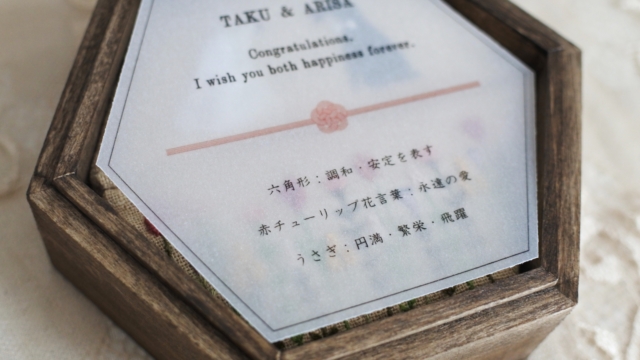 TAKU & ARISA
Congratulations.
I wish you both happiness forever.
六角形：調和・安定を表す
赤チューリップ花言葉：永遠の愛
うさぎ：円満・繁栄・飛躍